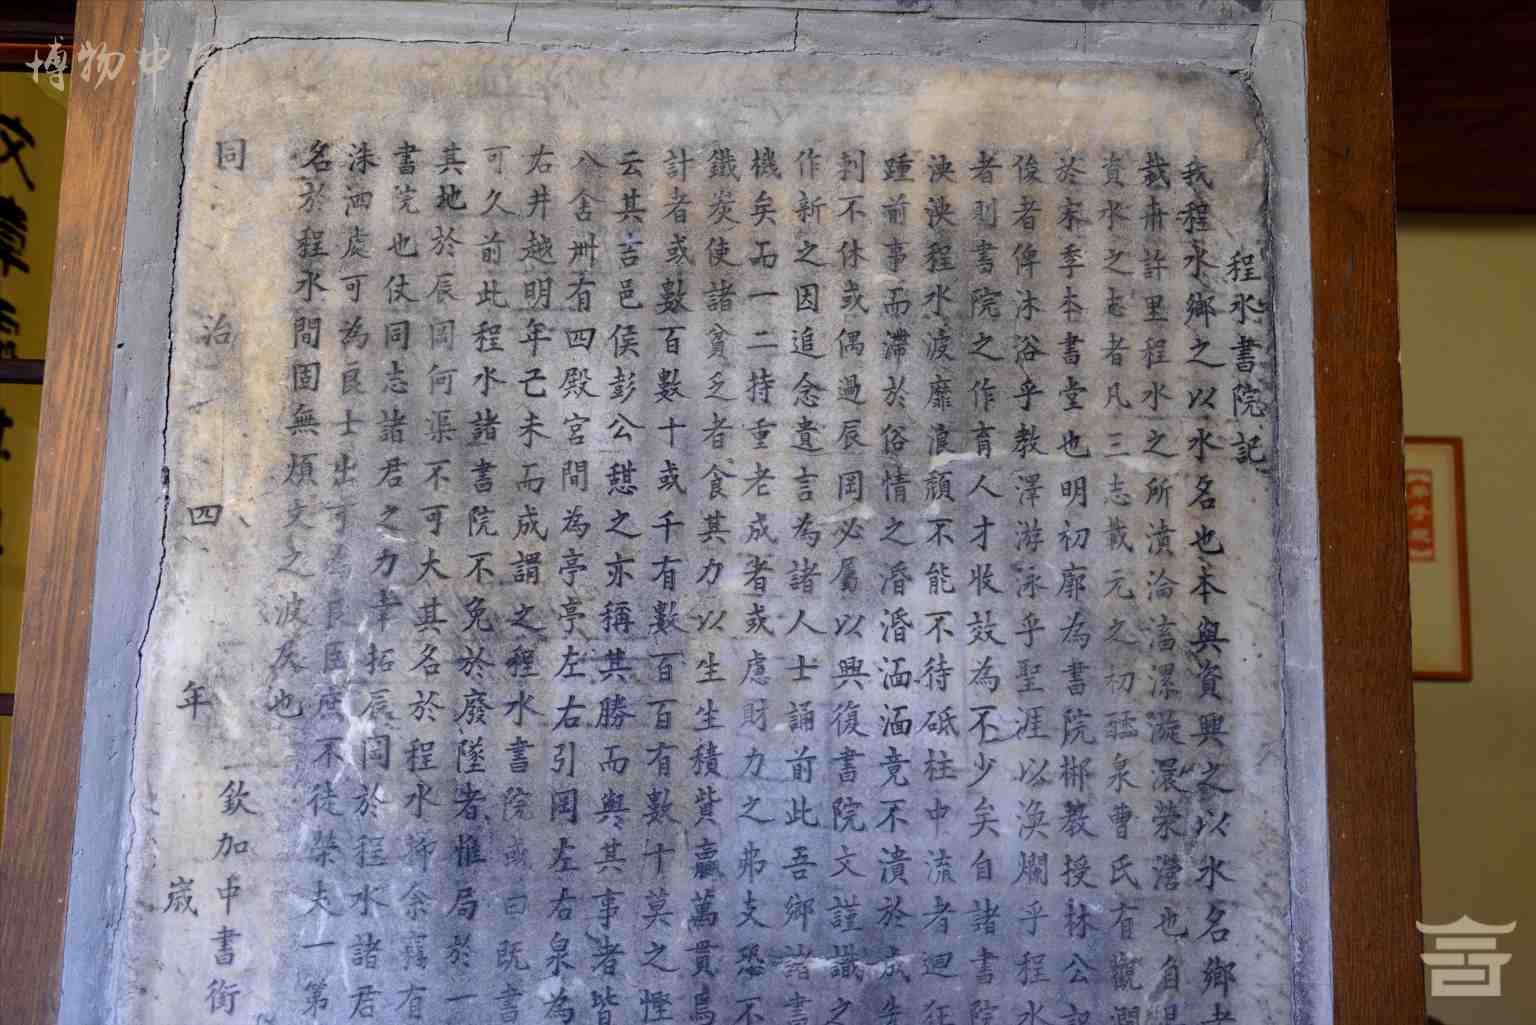 程水書院記
我程水鄉之以水名也本與資興之以水名鄉者
載舟計里程水之所漬淪濡漯漩濴縈灣也自
資水之志者凡三志載元之初醽泉曹氏有觀瀾
於宋季本書堂也明初廓為書院郴教授林公記
俊者俾沐浴乎教澤游泳乎聖涯以渙爛乎程水
者則書院之作育人才收效為不少矣自諸書院
泱泱程水波靡浪頹不能不待砥柱中流者迴狂
踵前事而滯於俗情之湣湣湎湎竟不潰於成先
刹不休或偶過辰岡必屬以興復書院文謹識之
作新之因追念遺言為諸人士誦前此吾鄉諸書
機矣而一二持重老成者或慮財力之弗支恐不
鐵炭使諸貧乏者食其力以生生積貲贏萬貫焉
計者或數百數十或千有數百百有數十莫之慳
云其吉邑侯彭公憇之亦稱其勝而與其事者皆
八舍卌有四殿宮間為亭亭左右引岡左右泉為
右井越明年己未而成謂之程水書院或曰既書
可久前此程水諸書院不免於廢墜者惟局於一
其地於辰岡何渠不可大其名於程水抑余竊有
書院也仗同志諸君之力幸拓辰岡於程水諸君
洙泗處可為良士出可為良臣庶不徒榮夫一第
名於程水間固無煩文之波及也
欽加中書銜
同治四年歲
博物中国